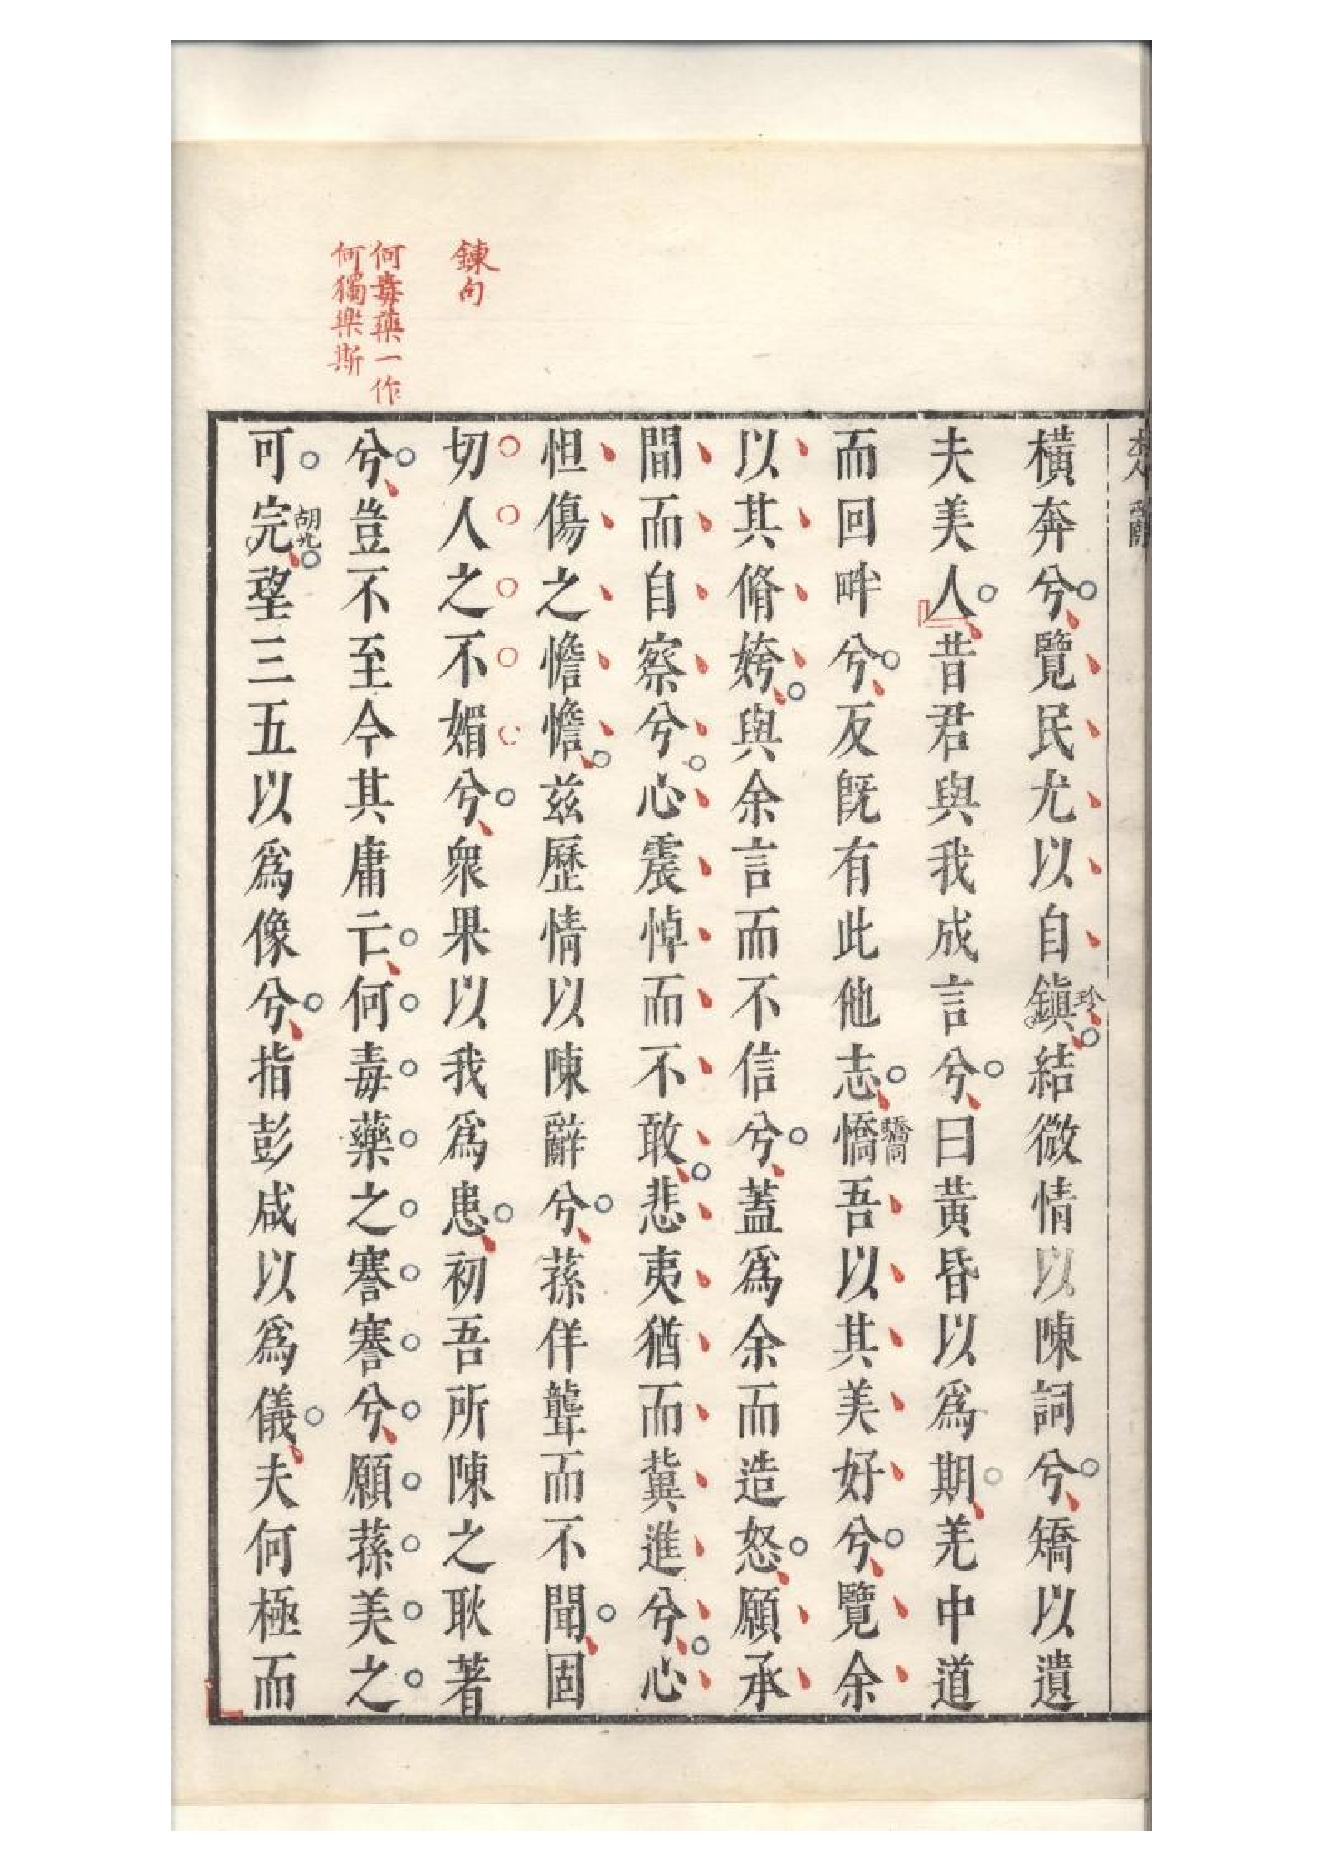 橫奔兮覽民尤以自鎭珍結微情以陳詞兮矯以遺
夫美人昔君與我成言兮曰黃昏以爲期羌中道
而回畔兮反旣有此他志憍驕同吾以其美好兮覽余
以其脩姱與余言而不信兮蓋爲余而造怒願承
間而自察兮心震悼而不敢悲夷猶而冀進兮心
怛傷之憺憺兹歷情以陳辭兮蓀佯聾而不聞固
鍊句
切人之不媚兮衆果以我爲患初吾所陳之耿著
何毒藥一作
何獨樂斯
兮豈不至今其庸亡何毒藥之謇謇兮願蓀美之
可完胡光望三五以爲像兮指彭咸以爲儀夫何極而